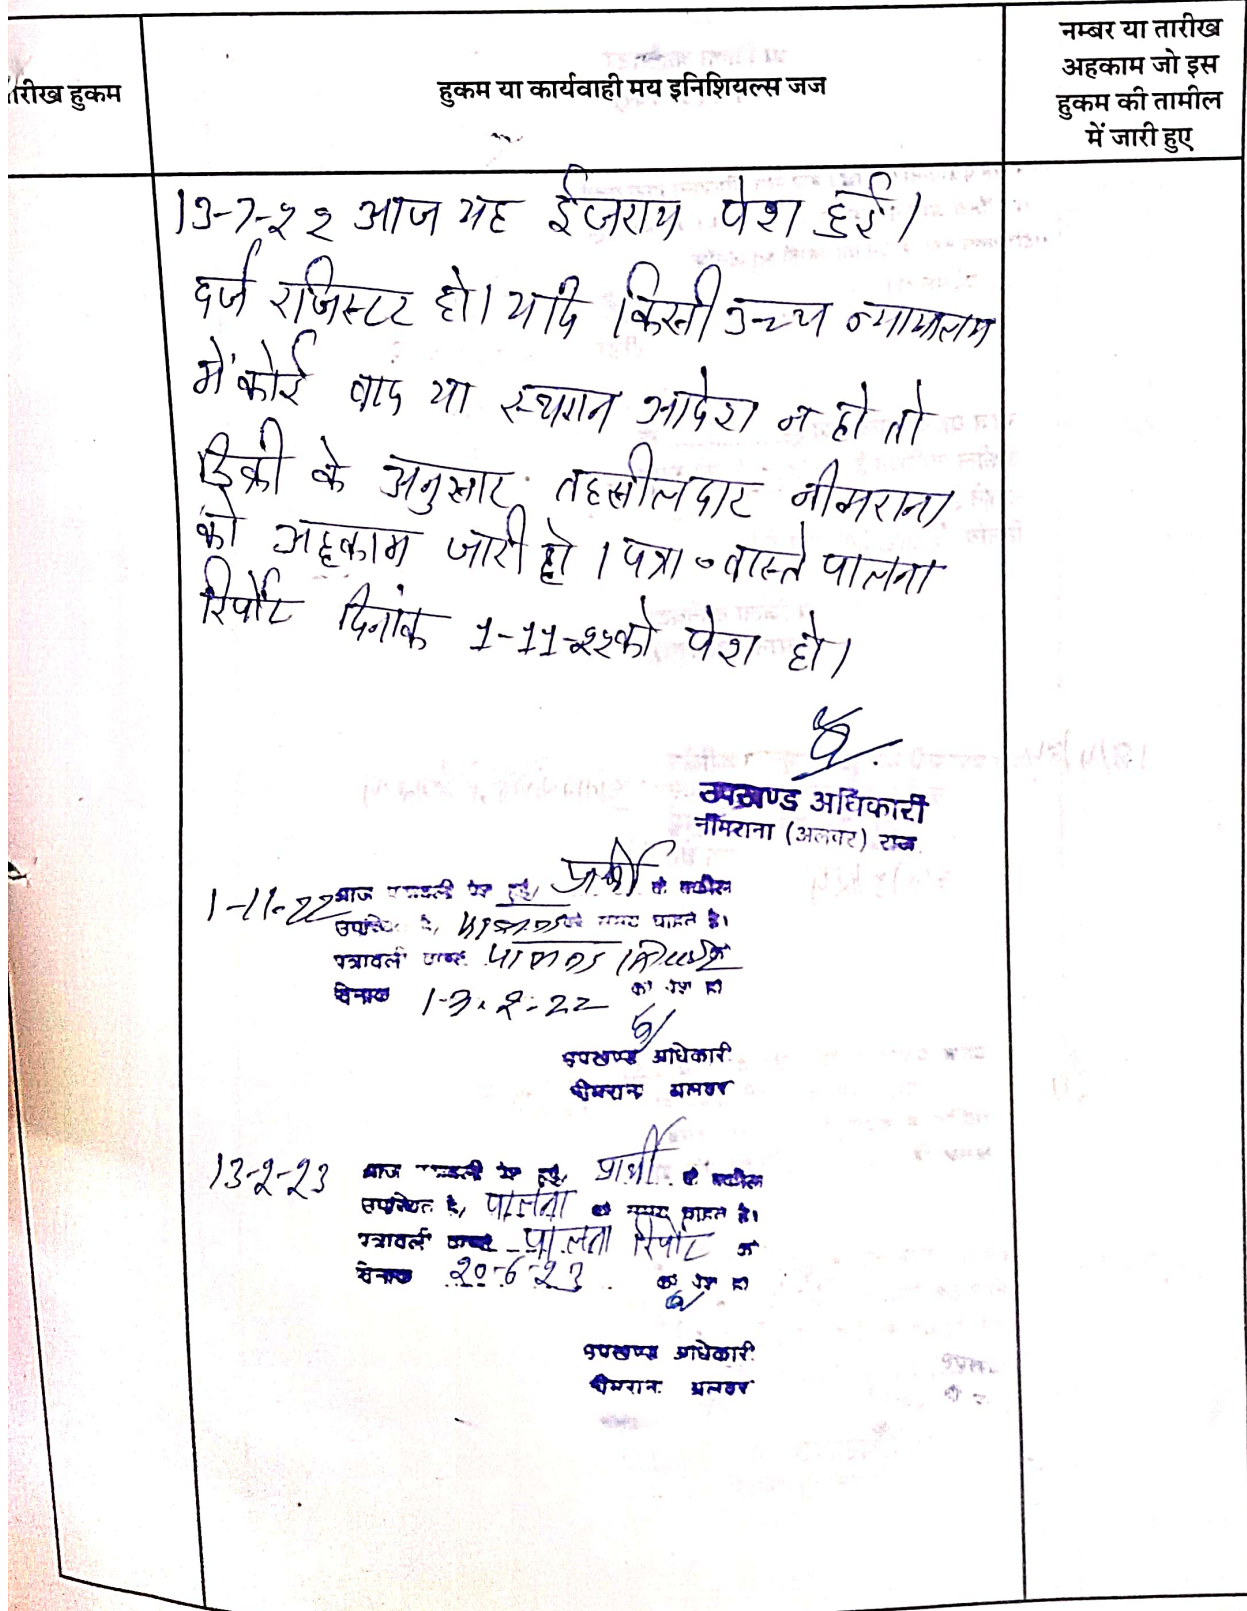 तारीख हुकम
हुकम या कार्यवाही मय इनिशियल्स जज
नम्बर या तारीख
अहकाम जो इस
हुकम की तामील
में जारी हुए
13-7-22 आज यह ईजराय पेश हुई।
दर्ज रजिस्टर हो। यदि किसी उच्च न्यायालय
में कोई वाद या स्थगन आदेश न हो तो
डिक्री के अनुसार तहसीलदार नीमराना
को अहकाम जारी हो। पत्रा॰ वास्ते पालना
रिर्पोट दिनांक 1-11-22 को पेश हो।
उपखण्ड अधिकारी
नीमराना (अलवर) राज.
1-11-22 आज पत्रावली पेश हुई, प्रार्थी के वकील
उपस्थित है, समय चाहते है।
पत्रावली वास्ते पालना
दिनांक को पेश हो
उपखण्ड अधिकारी
नीमराना अलवर
13-2-23 आज पत्रावली पेश हुई, प्रार्थी के वकील
उपस्थित है, पालना को समय चाहते है।
पत्रावली वास्ते पालना रिर्पोट के
दिनांक 20-6-23 को पेश हो
उपखण्ड अधिकारी
नीमराना अलवर